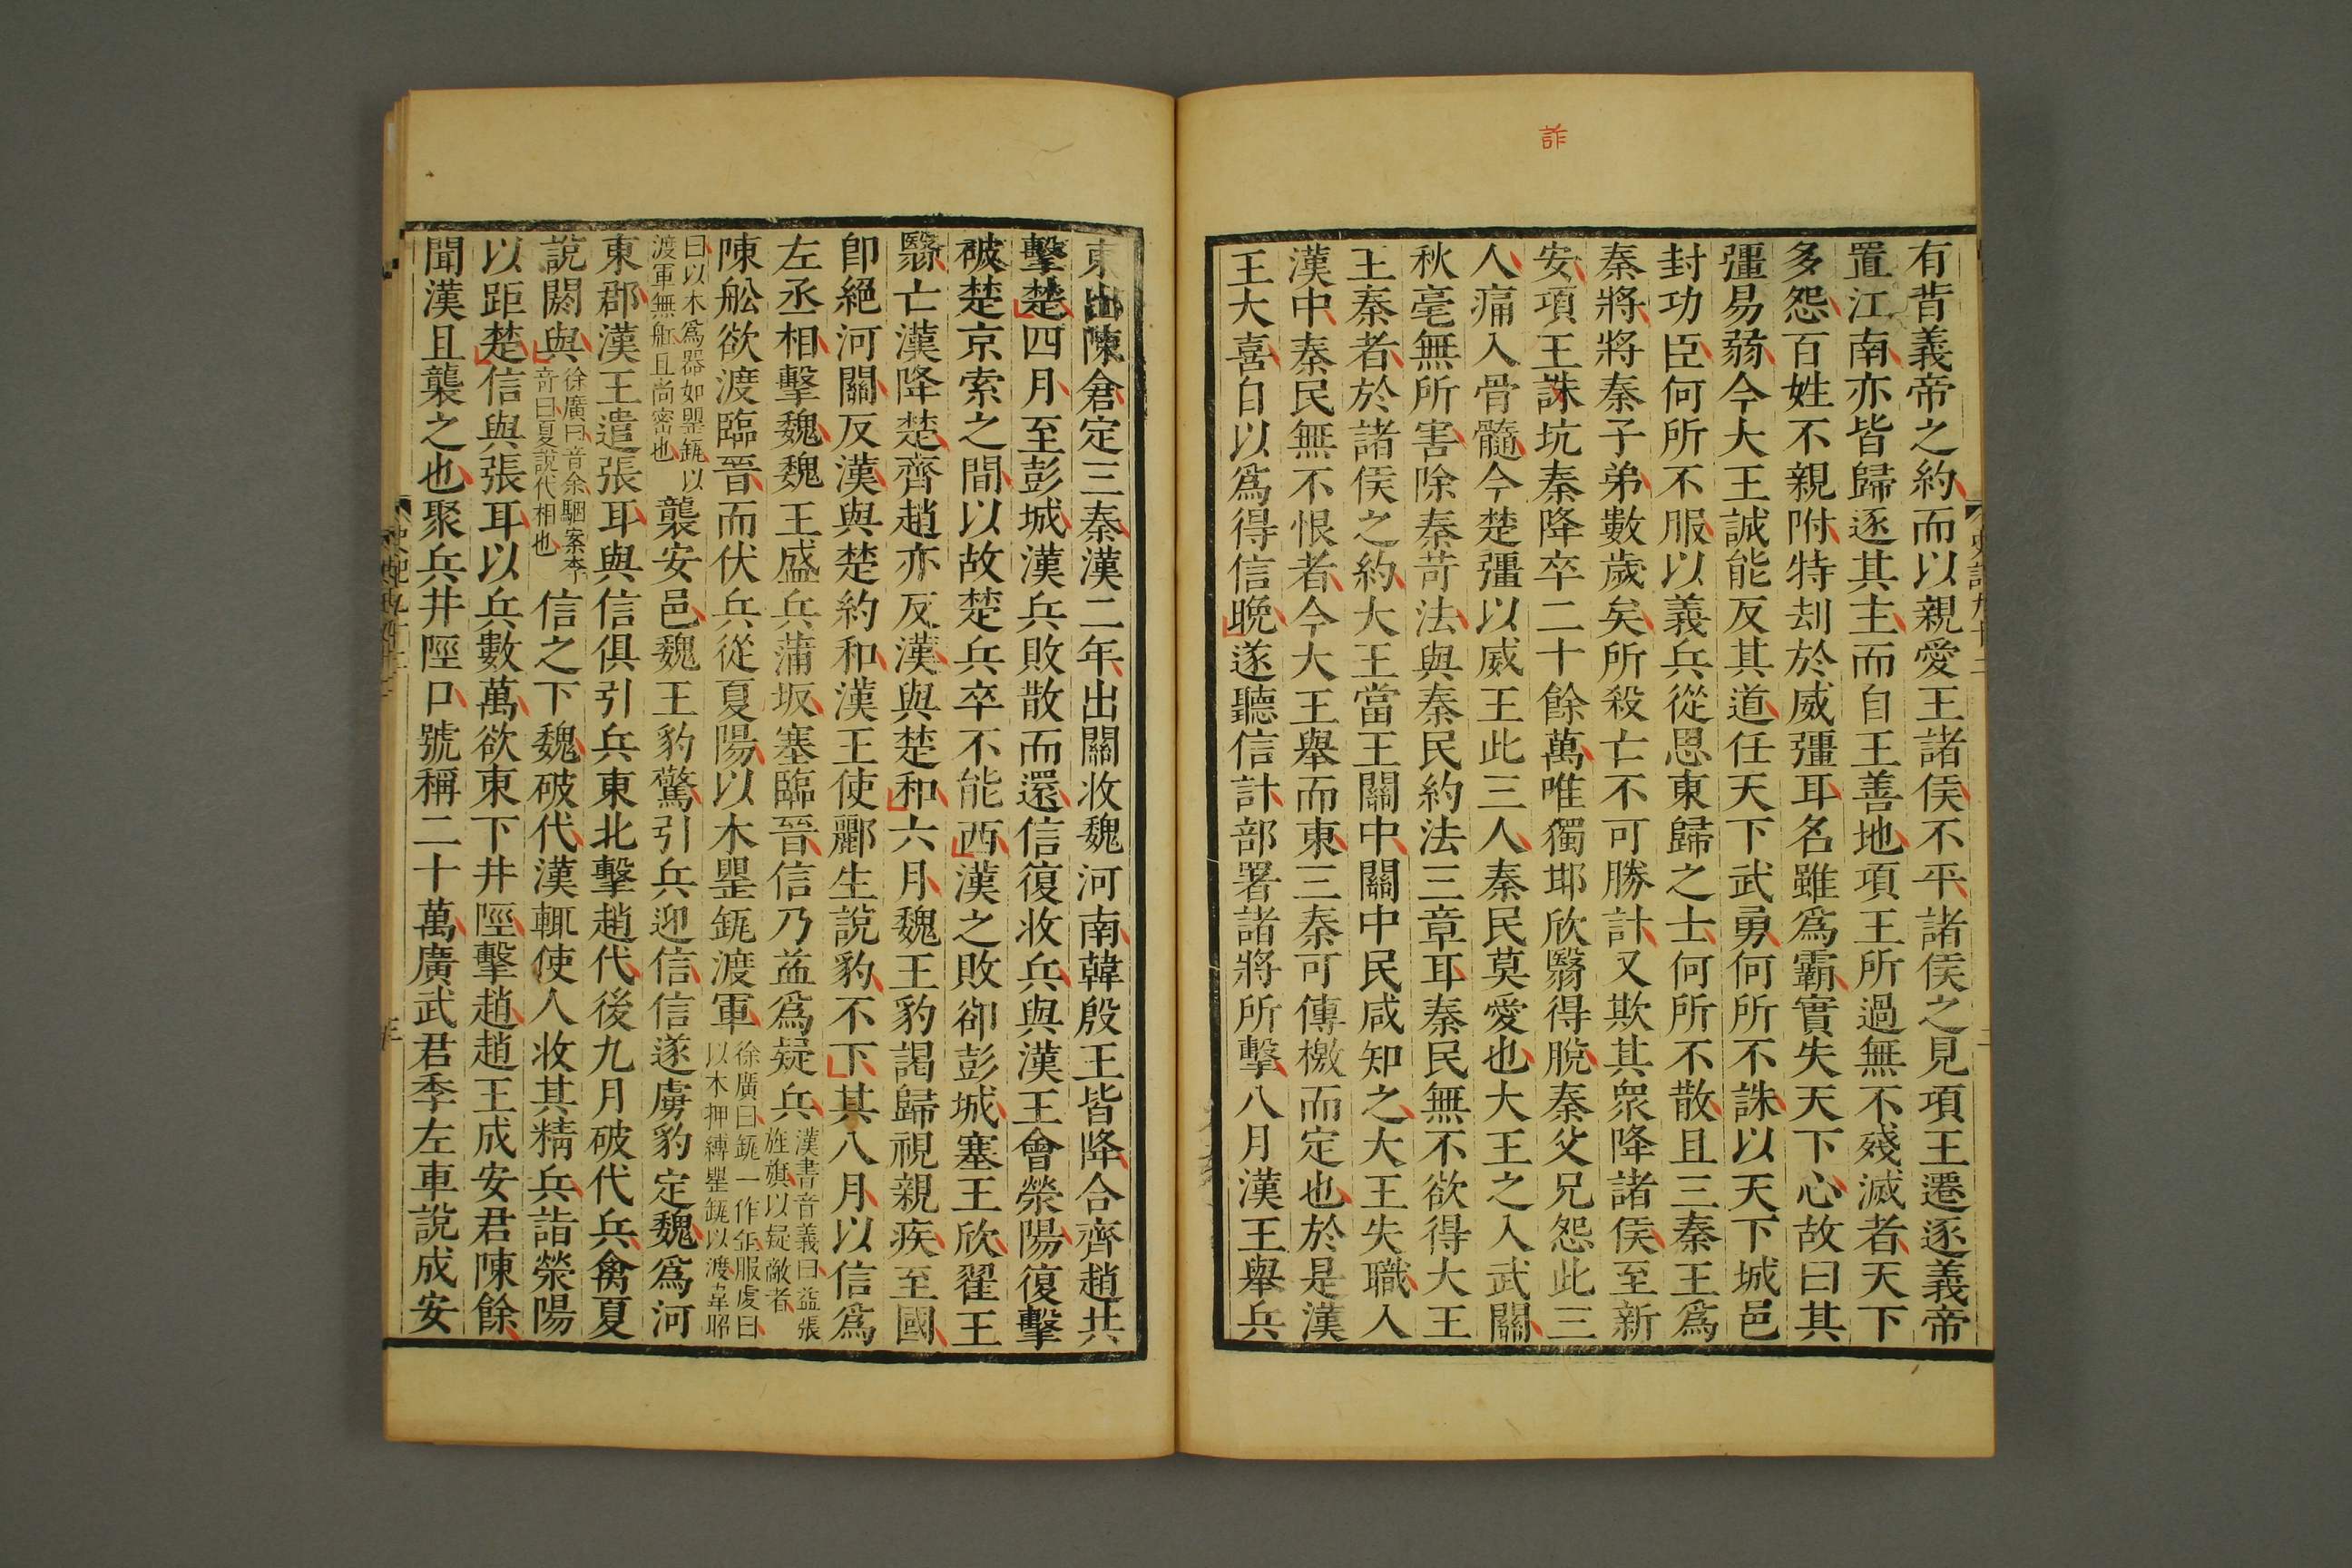 詐
有背義帝之約而以親愛王諸侯不平諸侯之見項王遷逐義帝
置江南亦皆歸逐其主而自王善地項王所過無不殘滅者天下
多怨百姓不親附特刼於威彊耳名雖爲霸實失天下心故曰其
彊易弱今大王誠能反其道任天下武勇何所不誅以天下城邑
封功臣何所不服以義兵從思東歸之士何所不散且三秦王爲
秦將將秦子弟數歲矣所殺亡不可勝計又欺其衆降諸侯至新
安項王誅坑秦降卒二十餘萬唯獨邯欣翳得脫秦父兄怨此三
人痛入骨髓今楚彊以威王此三人秦民莫愛也大王之入武關
秋毫無所害除秦苛法與秦民約法三章耳秦民無不欲得大王
王秦者於諸侯之約大王當王關中關中民咸知之大王失職入
漢中秦民無不恨者今大王舉而東三秦可傳檄而定也於是漢
王大喜自以爲得信晚遂聽信計部署諸將所擊八月漢王舉兵
東出陳倉定三秦漢二年出關收魏河南韓殷王皆降合齊趙共
擊楚四月至彭城漢兵敗散而還信復收兵與漢王會滎陽復擊
破楚京索之間以故楚兵卒不能西漢之敗卻彭城塞王欣翟王
翳亡漢降楚齊趙亦反漢與楚和六月魏王豹謁歸視親疾至國
卽絕河關反漢與楚約和漢王使酈生說豹不下其八月以信爲
左丞相擊魏魏王盛兵蒲坂塞臨晉信乃益爲疑兵漢書音義曰益張旌旗以疑敵者
陳舩欲渡臨晉而伏兵從夏陽以木罌缻渡軍徐廣曰缻一作缶服虔曰以木押縛罌缻以渡韋昭
曰以木爲器如罌缻以渡軍無舩且尚密也襲安邑魏王豹驚引兵迎信信遂虜豹定魏爲河
東郡漢王遣張耳與信俱引兵東北擊趙代後九月破代兵禽夏
說閼與徐廣曰音余駰案李竒曰夏說代相也信之下魏破代漢輒使人收其精兵詣滎陽
以距楚信與張耳以兵數萬欲東下井陘擊趙趙王成安君陳餘
聞漢且襲之也聚兵井陘口號稱二十萬廣武君李左車說成安